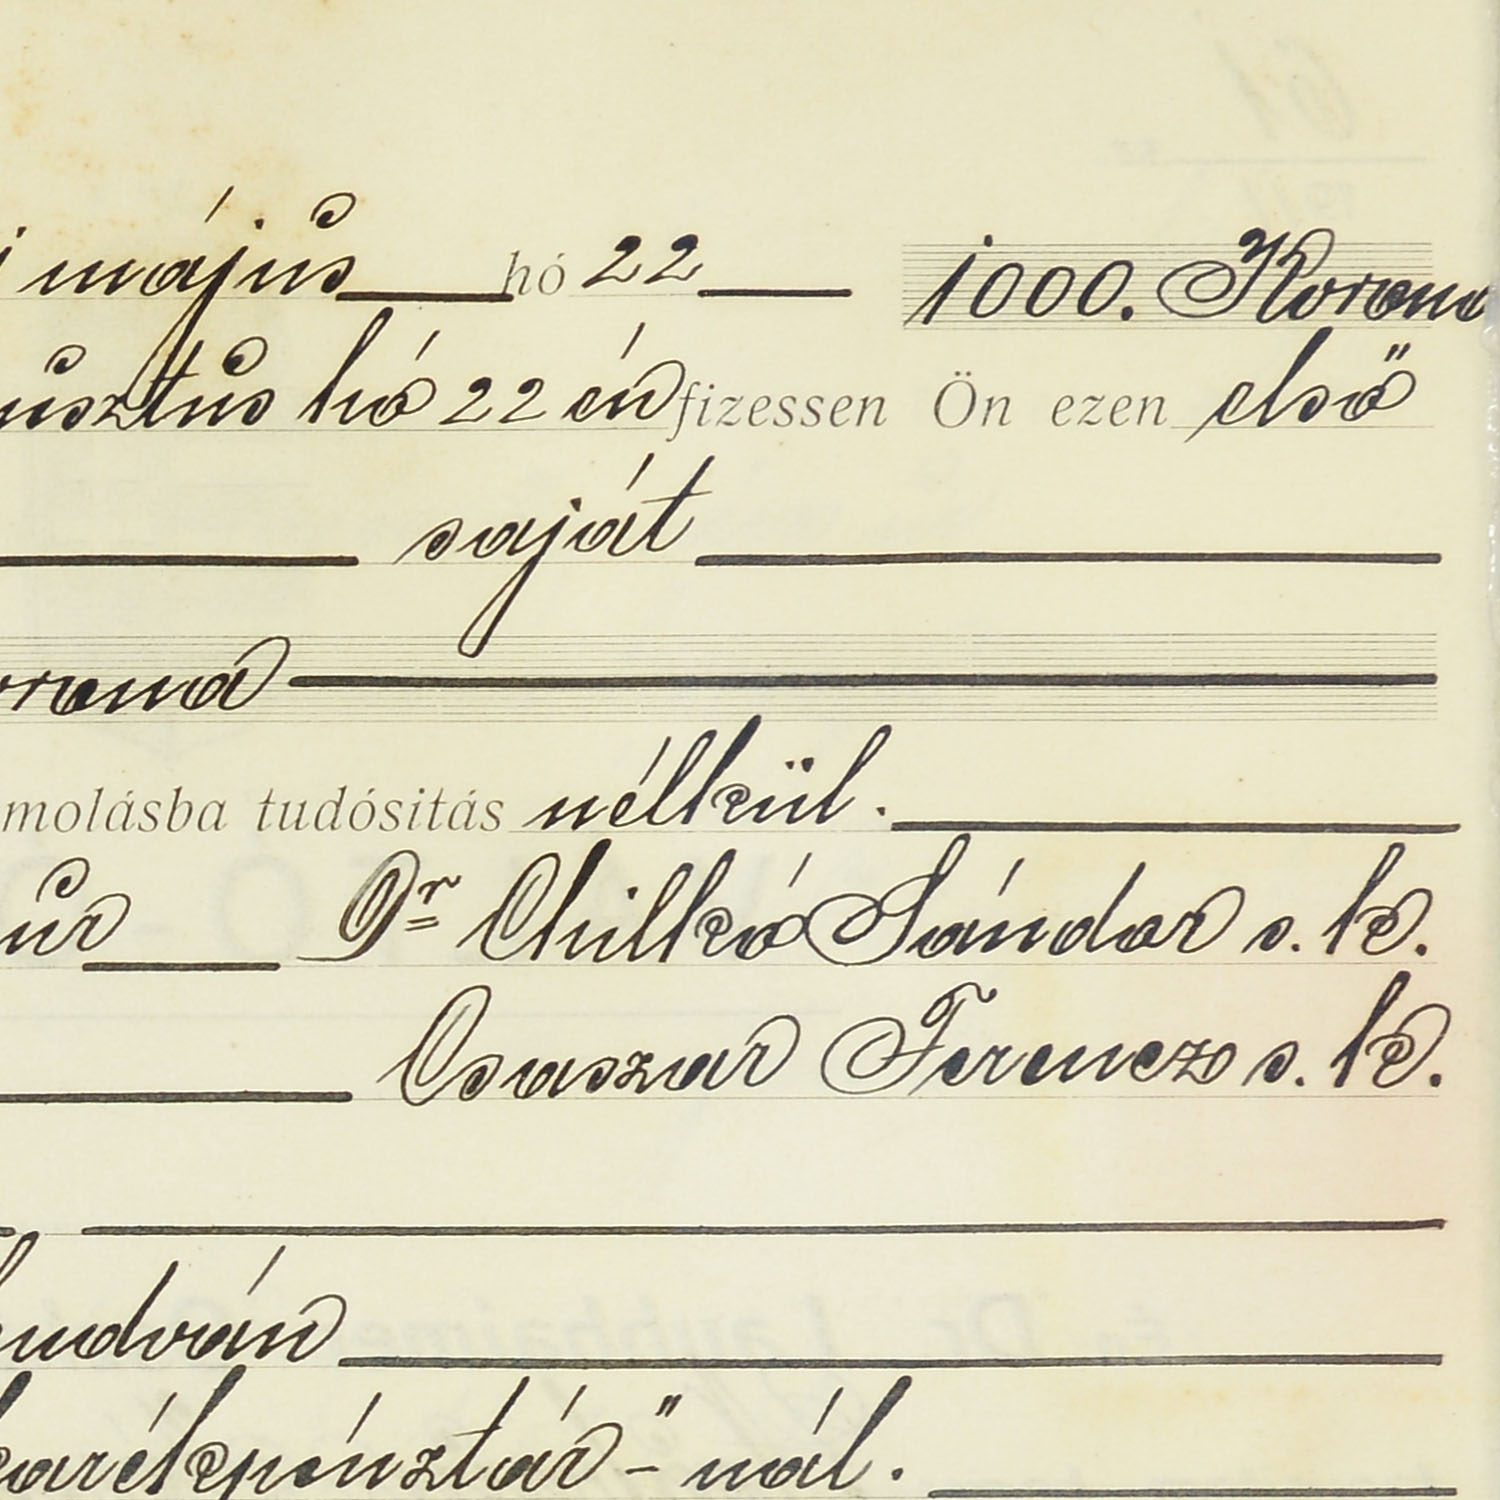 i május hó 22 1000. Korona
usztus hó 22 én fizessen Ön ezen első
saját
orona
molásba tudósitás nélkül.
úr Dr Chilkó Sándor s. k.
Csaszar Ferencz s. k.
endván
karékpénztár"-nál.